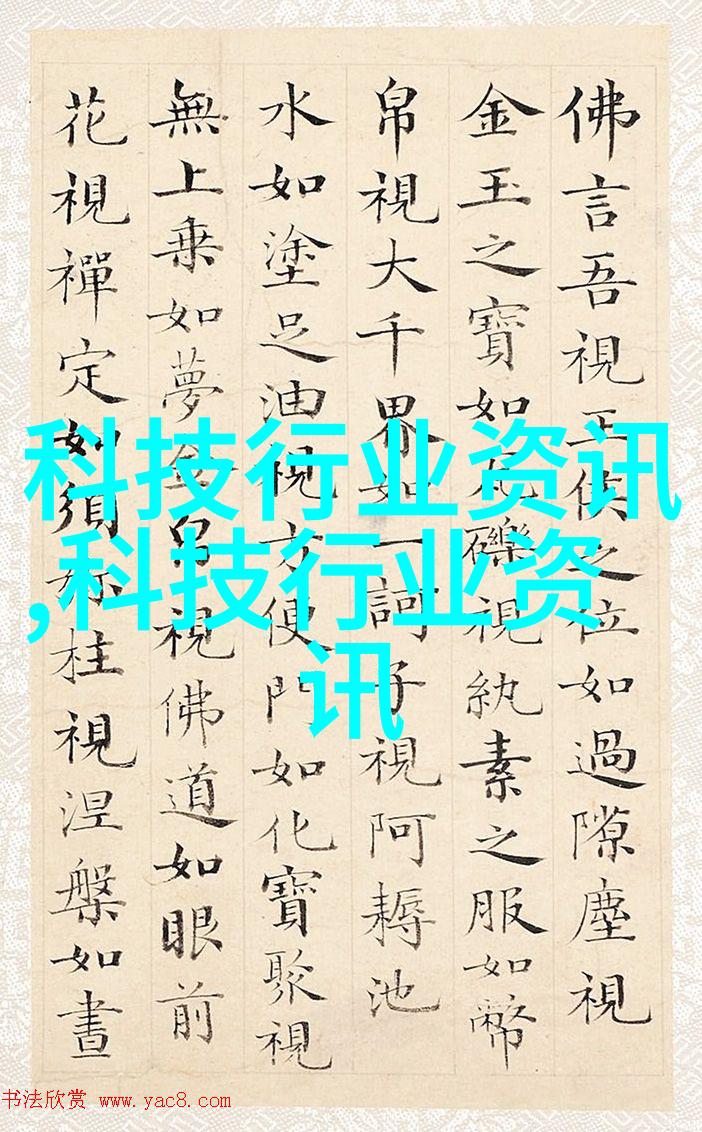 佛言吾視王侯之位如過隙塵視
金玉之寶如瓦礫視紈素之服如幣
帛視大千界如一訶子視阿耨池
水如塗足油視方便門如化寶聚視
無上乗如夢金帛視佛道如眼前
花視禪定如須弥柱視涅槃如晝
科技行业资讯
,科技行业资
讯
书法欣赏 www.yac8.com